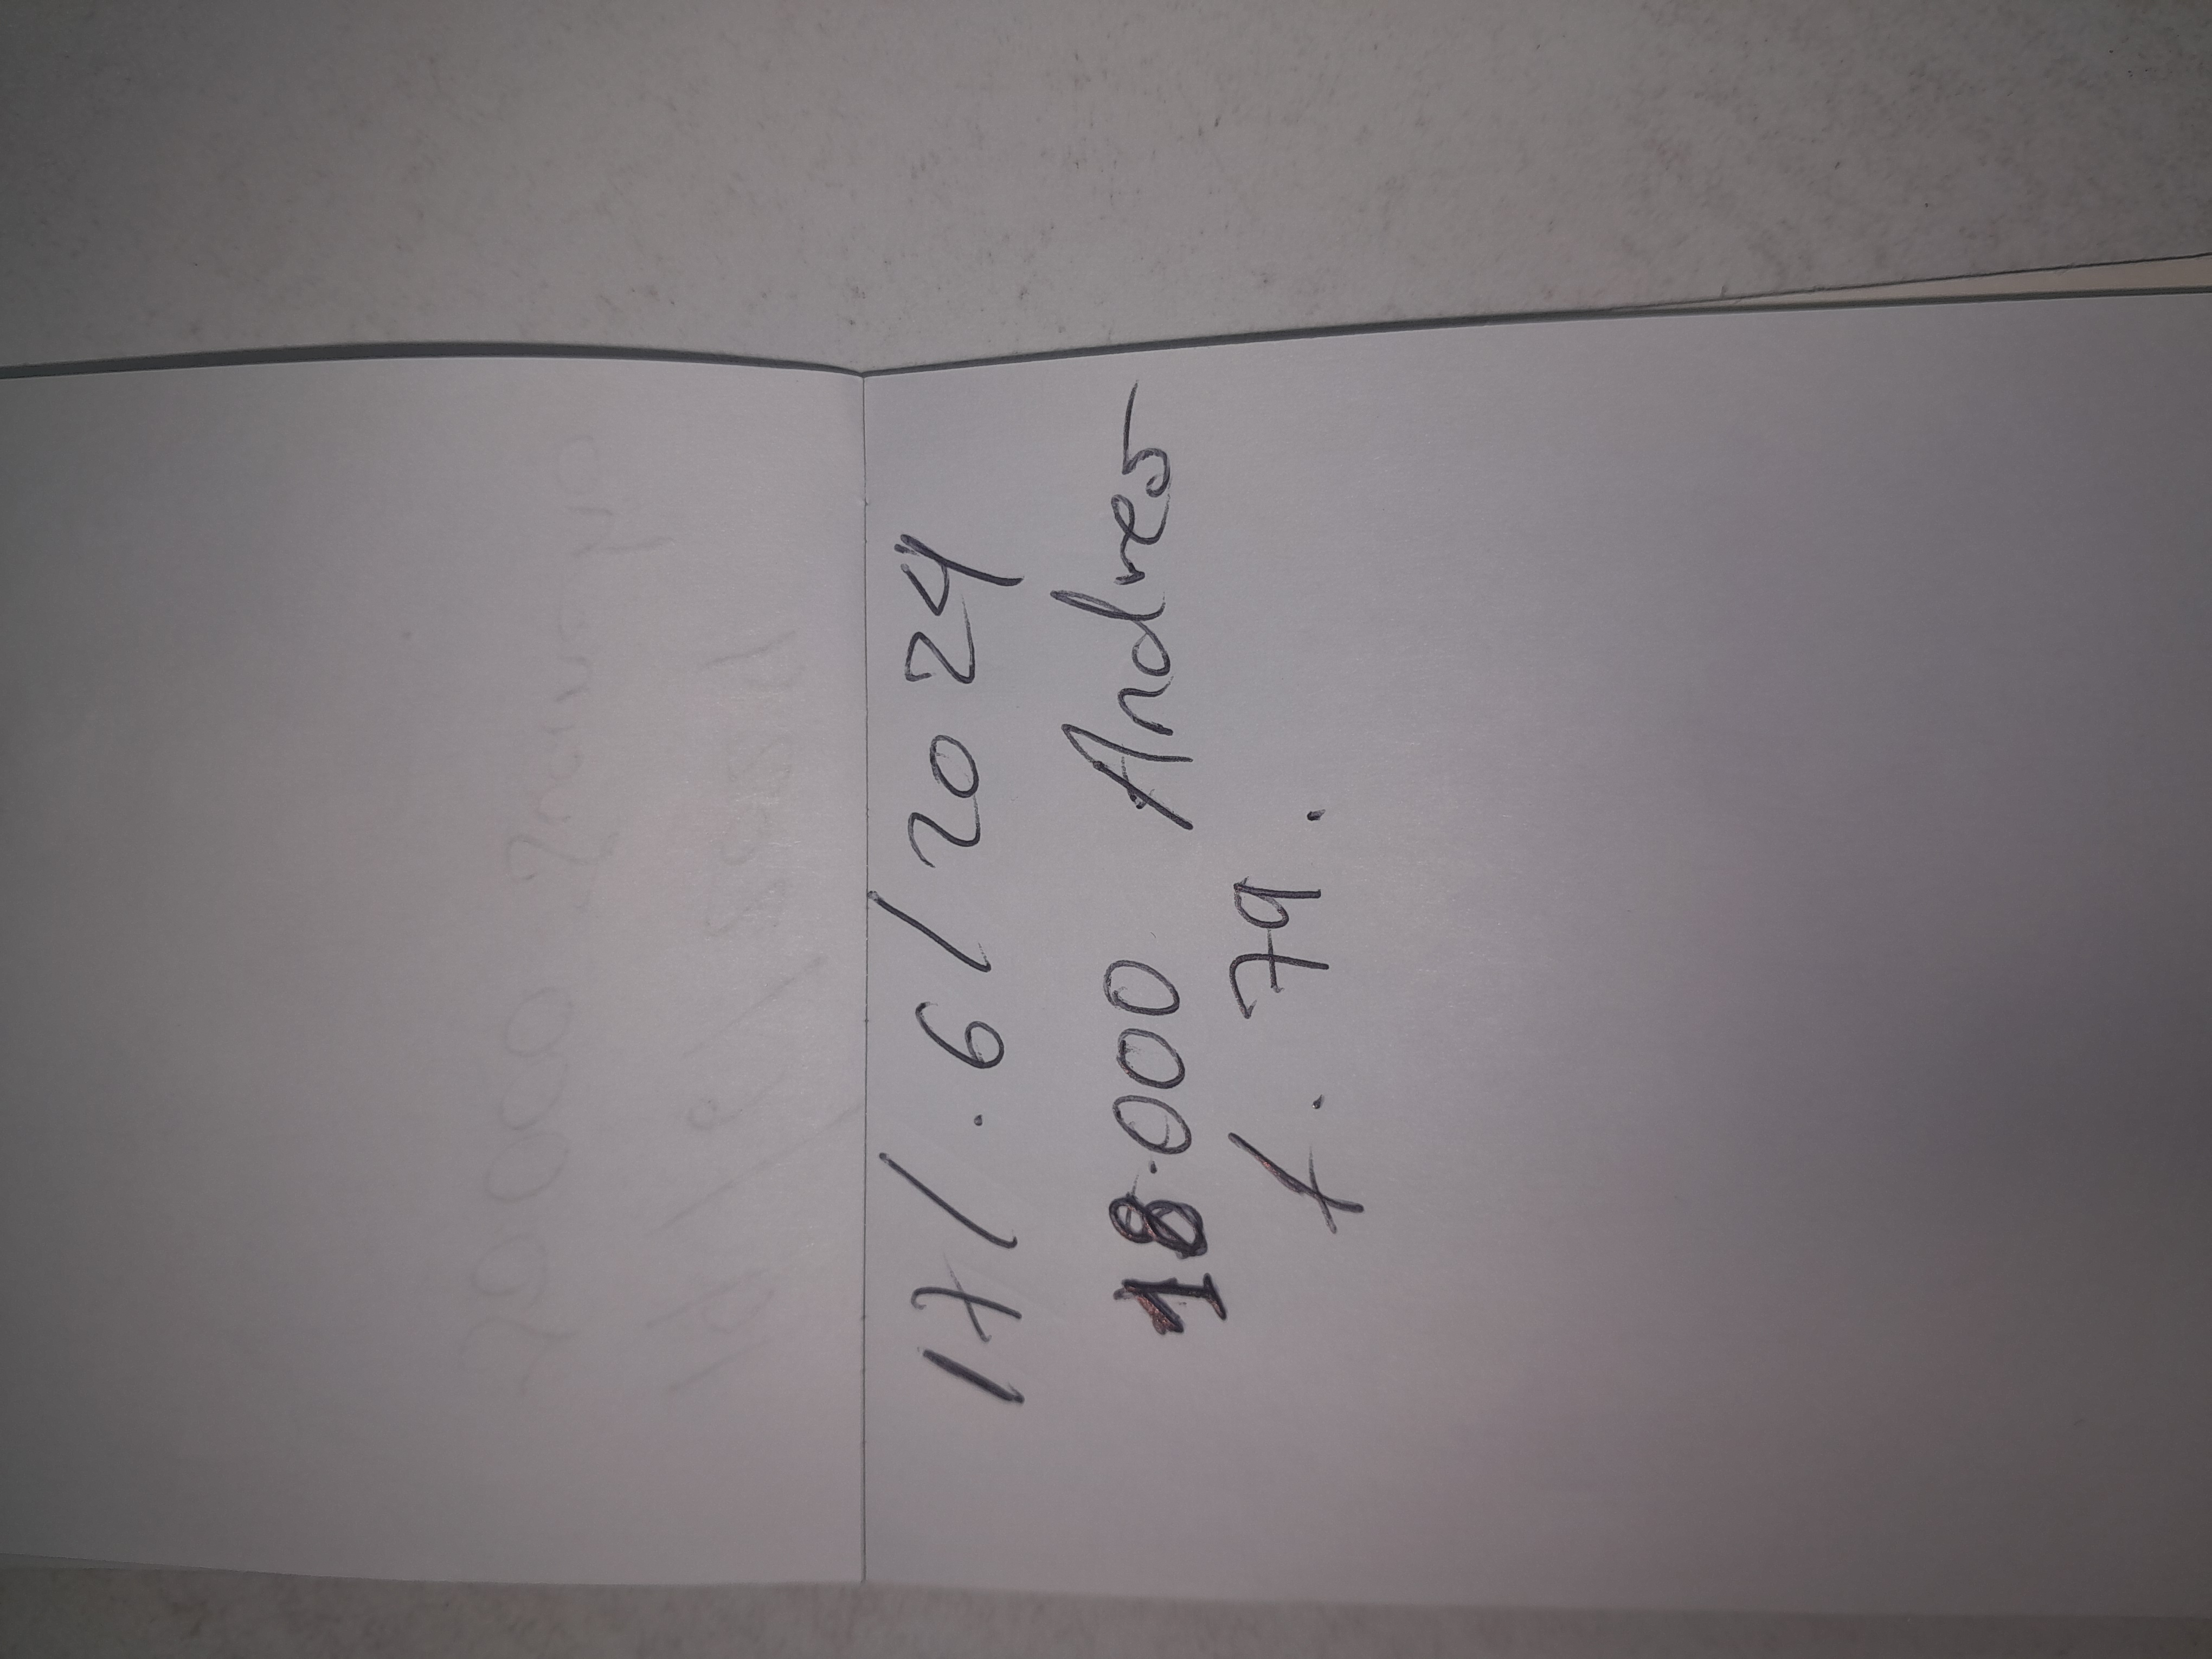 17/.6/2024
18.000 Andres
f. 79.